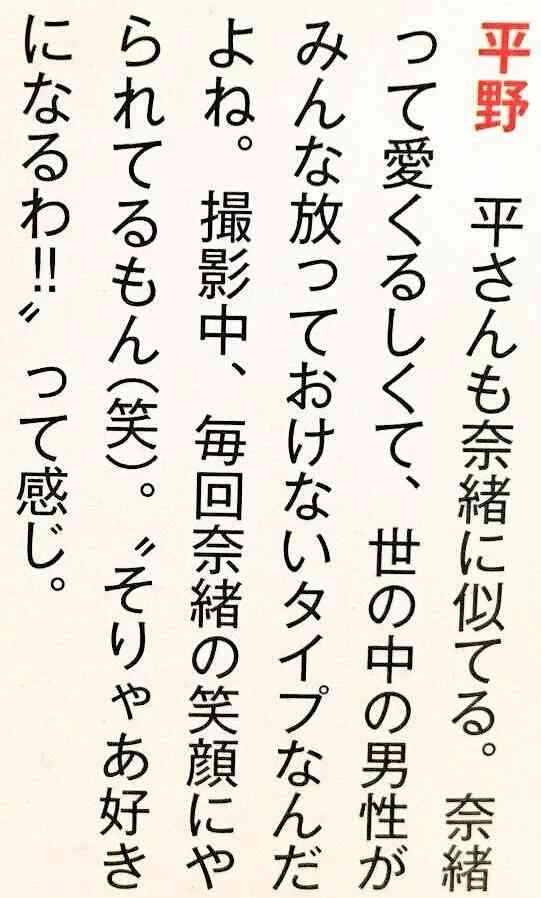 平野　平さんも奈緒に似てる。奈緒
って愛くるしくて、世の中の男性が
みんな放っておけないタイプなんだ
よね。撮影中、毎回奈緒の笑顔にや
られてるもん(笑)。〝そりゃあ好き
になるわ!!〟って感じ。